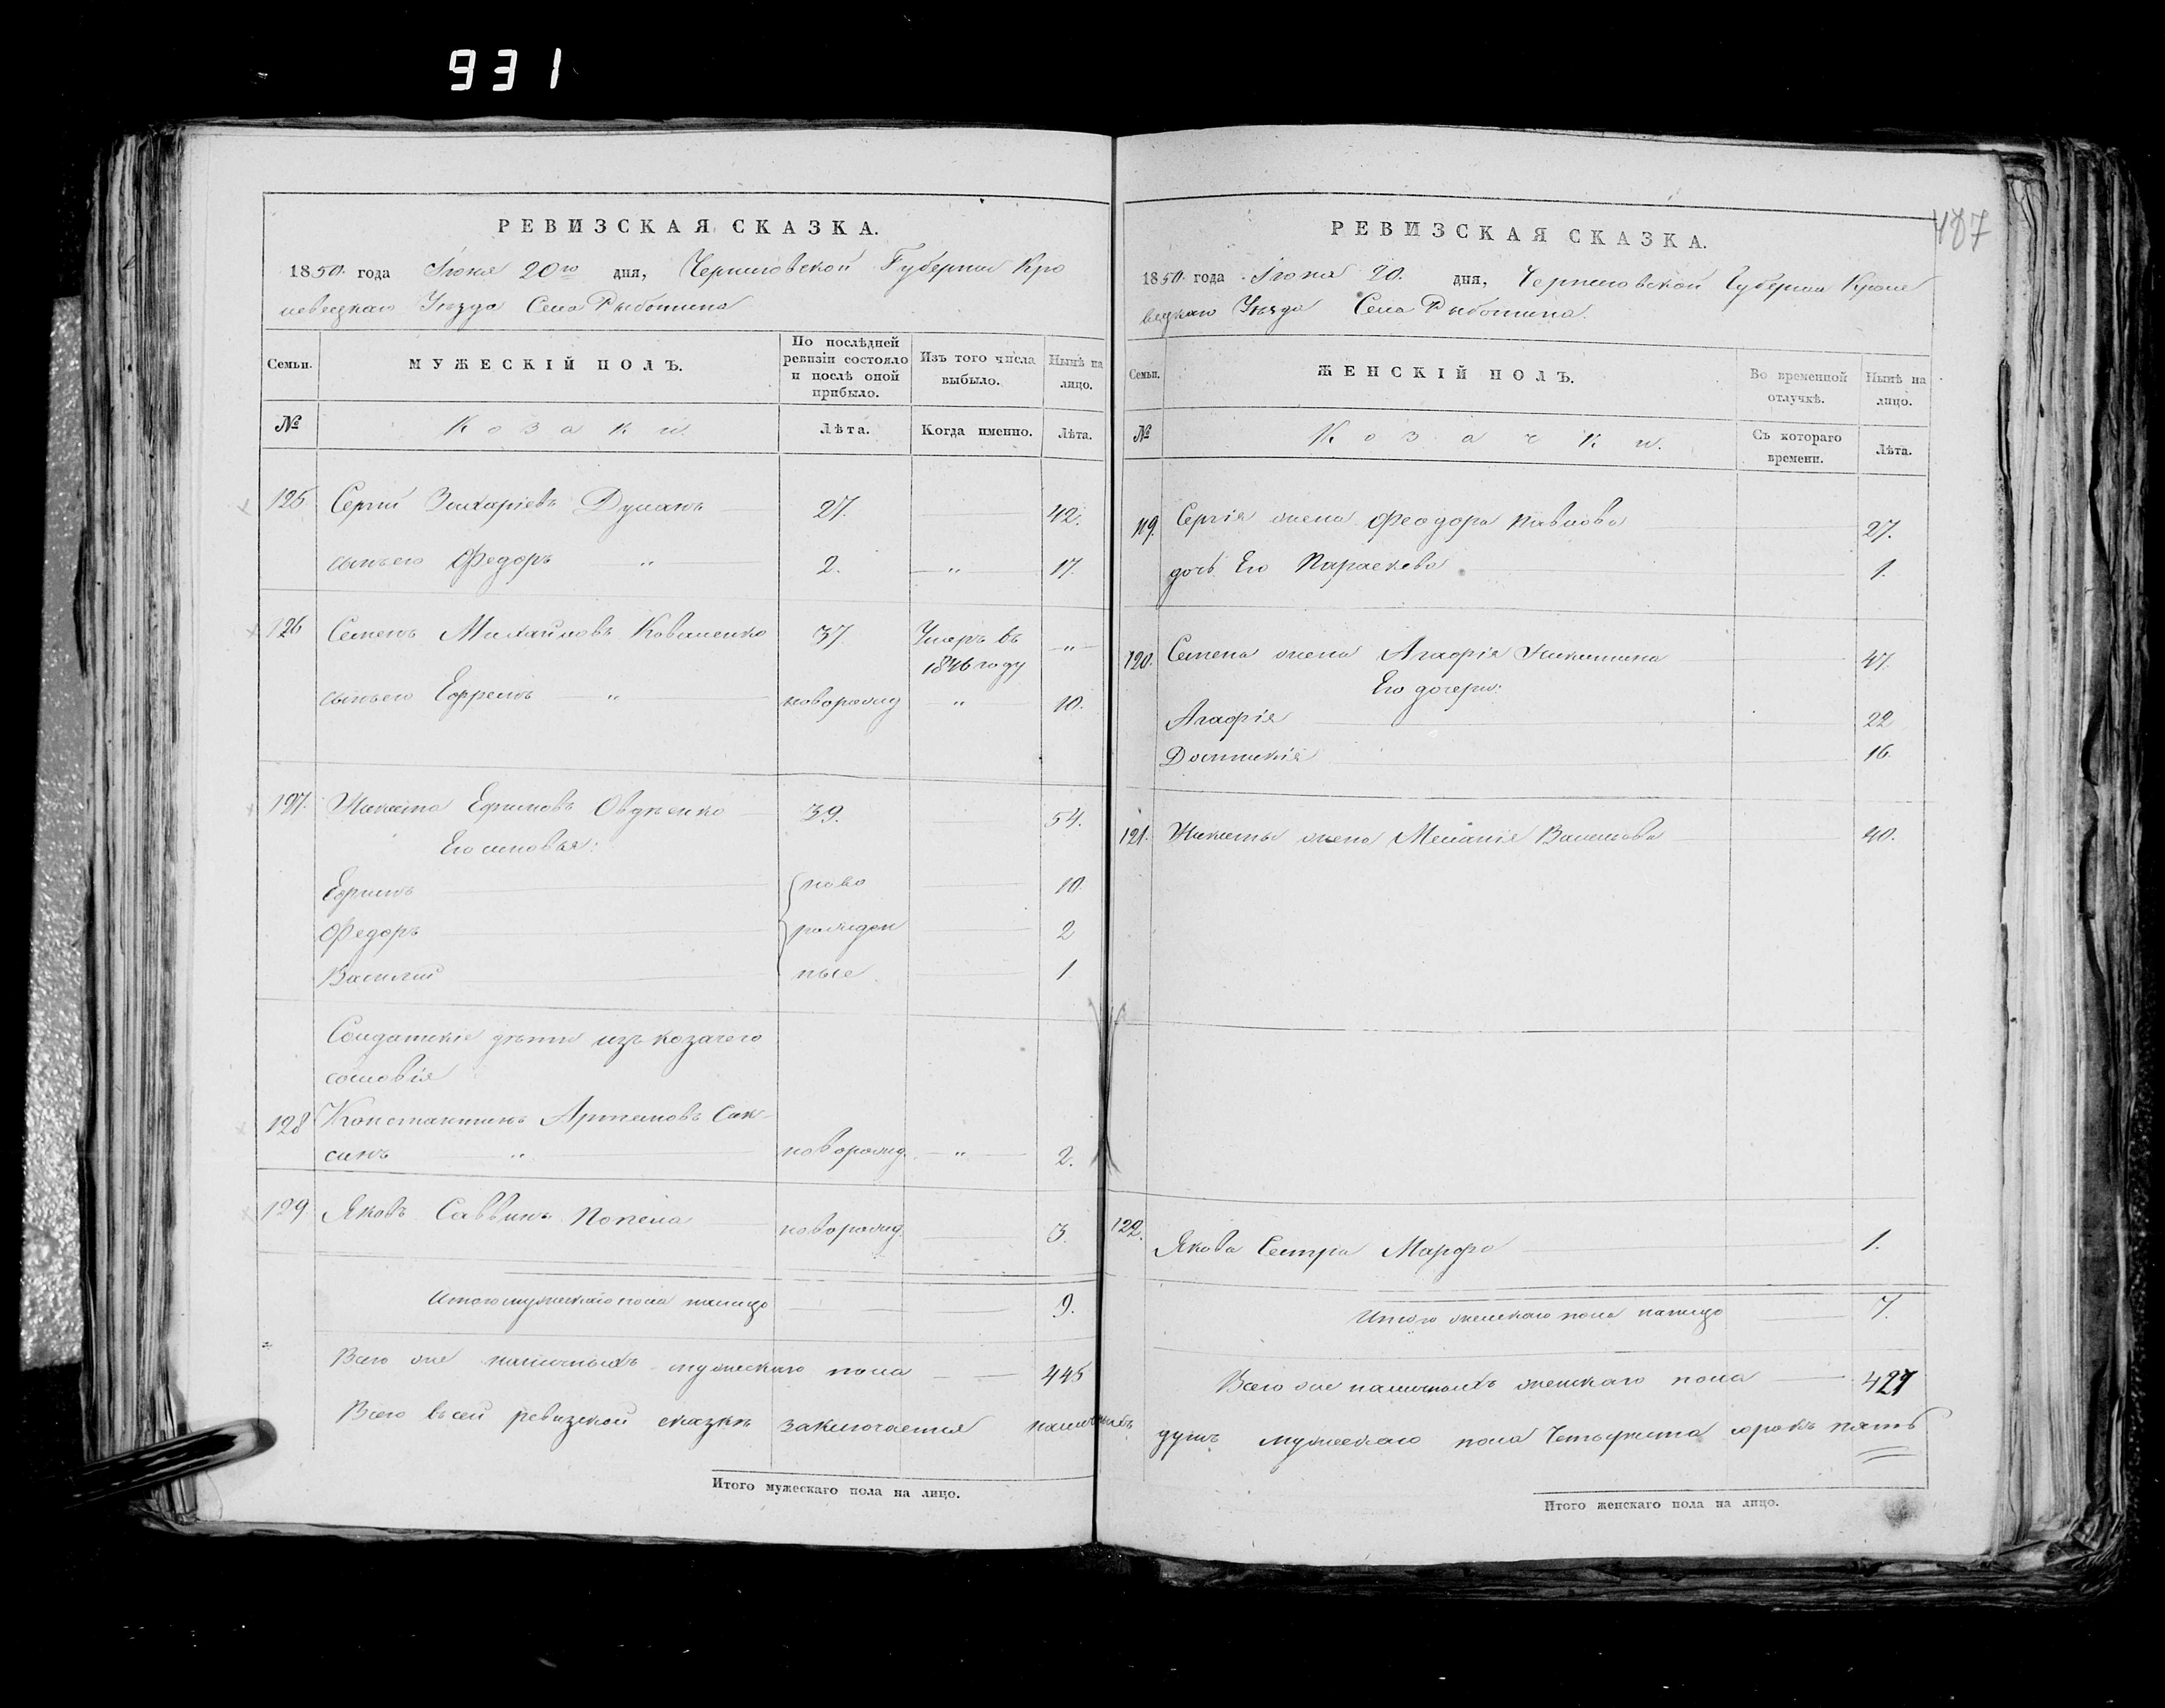 931
РЕВИЗСКАЯ СКАЗКА.
1850 года Іюня 20го дня, Черниговской Губерніи Кро
левецкаго Уѣзда Села Рыботина
Семьи.
МУЖЕСКІЙ ПОЛЪ.
По послѣдней ревизіи состояло и послѣ оной прибыло.
Изъ того числа выбыло.
Нынѣ на лицо.
№
Козаки.
Лѣта.
Когда именно.
Лѣта.
125 Сергій Захаріевъ 27. 42.
сынъ его Федоръ " 2. " 17.
126 Семенъ Михайловъ Коваленко 37 Умеръ въ "
1846 году
сынъ его Ефремъ " новорожд " 10.
127. Никита Ефимовъ Овдѣенко 39. 54.
Его сыновья:
Ефимъ ново 10.
Федоръ рожден 2
Василий ные 1
Солдатскіе дѣти изъ козачего
сословія
128 Константинъ Артемовъ Сак-
синъ " новорожд. " 2.
129 Яковъ Саввинъ Попела новорожд. 3.
Итого мужескаго пола налицо 9.
Всего же наличныхъ мужескаго пола 445
Всего въ сей ревизской сказкѣ заключается наличныхъ
Итого мужескаго пола на лицо.
487
РЕВИЗСКАЯ СКАЗКА.
1850 года Іюня 20. дня, Черниговской Губерніи Кроле
вецкаго Уѣзда Села Рыботина.
Семьи.
ЖЕНСКІЙ ПОЛЪ.
Во временной отлучкѣ.
Нынѣ на лицо.
№
Козачки.
Съ котораго времени.
Лѣта.
119. Сергія жена Феодора Павлова 27.
дочь Его Параскева 1.
120. Семена жена Агафія Никитина 47.
Его дочери:
Агафія 22
Домникія 16
121. Никиты жена Меланія Васильева 40.
122. Якова Сестра Марфа 1.
Итого женскаго пола налицо 7.
Всего же наличныхъ женскаго пола 427
душъ мужескаго пола Четыреста сорокъ пять
Итого женскаго пола на лицо.